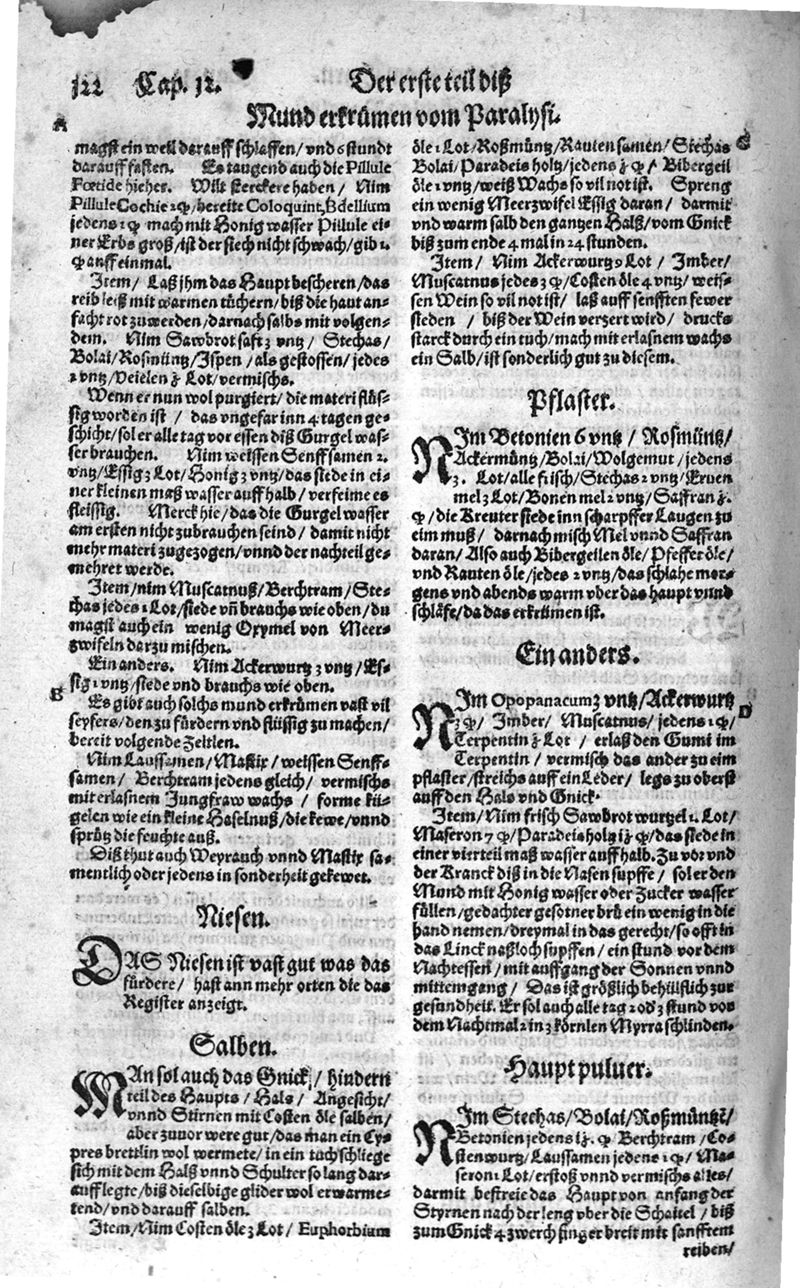 122 Cap. 12. Der erste teil diß
Mund erkrümen vom Paralysi.
A
magst ein well darauff schlaffen/ vnd 6 stundt
darauff fasten. Es taugend auch die Pillule
Fœtide hieher. Wilt sterckere haben/ Nim
Pillule Cochie, bereite Coloquint, Bdellium
jedens mach mit Honig wasser Pillule ei-
ner Erbs groß/ ist der siech nicht schwach/ gib 1.
auff einmal.
Item/ Laß jhm das Haupt bescheren/ das
reib mit warmen tüchern/ biß die haut an-
facht rot zuwerden/ darnach salbs mit volgen-
dem. Nim Sawbrot safft 3 vntz/ Stechas/
Bolai/ Roßmüntz/ Ispen/ als gestossen/ jedes
2 vntz/ Veielen Lot/ vermischs.
Wenn er nun wol purgiert/ die materi flüs-
sig worden ist/ das vngefar inn 4 tagen ge-
schicht/ sol er alle tag vor essen diß Gurgel was-
ser brauchen. Nim weissen Senff samen 2.
vntz/ Essig 3 Lot/ Honig 3 vntz/ das siede in ei-
ner kleinen maß wasser auff halb/ verfeime es
fleissig. Merck hie/ das die Gurgel wasser
am ersten nicht zubrauchen seind/ damit nicht
mehr materi zugezogen/ vnnd der nachteil ge-
mehret werde.
Item/ nim Muscatnuß/ Berchtram/ Ste-
chas jedes 1 Lot/ siede vn̄ brauchs wie oben/ du
magst auch ein wenig Oxymel von Meer-
zwifeln darzu mischen.
Ein anders. Nim Ackerwurtz 3 vntz/ Es-
sig 1 vntz/ siede vnd brauchs wie oben.
B
Es gibt auch solchs mund erkrümen vast vil
seyfers/ den zu fürdern vnd flüssig zu machen/
bereit volgende Zeltlen.
Nim Laussamen/ Mastix/ weissen Senff-
samen/ Berchtram jedens gleich/ vermischs
mit erlasnem Jungfraw wachs/ forme kü-
gelen wie ein kleine Haselnuß/ die kewe/ vnnd
sprütz die feuchte auß.
Diß thut auch Weyrauch vnnd Mastix sa-
mentlich oder jedens in sonderheit gekewet.
Niesen.
DAS Niesen ist vast gut was das
fürdere/ hast ann mehr orten die das
Register anzeigt.
Salben.
MAn sol auch das Gnick/ hindern
teil des Haupts/ Hals/ Angesicht/
vnnd Stirnen mit Costen öle salben/
aber zuvor were gut/ das man ein Cy-
pres brettlin wol wermete/ in ein tuch schliege
sich mit dem Halß vnnd Schulter so lang dar-
auff legte/ biß dieselbige glider wol erwarme-
tend/ vnd darauff salben.
Item/ Nim Costen öle 3 Lot/ Euphorbium
C
öle 1 Lot/ Roßmüntz/ Rauten samen/ Stechas
Bolai/ Paradeis holtz/ jedens/ Bibergeil
öle 1 vntz/ weiß Wachs so vil not ist. Spreng
ein wenig Meerzwifel Essig daran/ darmit
vnd warm salb den gantzen Halß/ vom Gnick
biß zum ende 4 mal in 24 stunden.
Item/ Nim Ackerwurtz Lot/ Imber/
Muscatnus jedes/ Costen öle 4 vntz/ weis-
sen Wein so vil not ist/ laß auff senfften fewer
sieden/ biß der Wein verzert wird/ drucks
starck durch ein tuch/ mach mit erlasnem wachs
ein Salb/ ist sonderlich gut zu diesem.
Pflaster.
NIm Betonien 6 vntz/ Roßmüntz/
Ackermüntz/ Bolai/ Wolgemut/ jedens
3. Lot/ alle frisch/ Stechas 2 vntz/ Eruen
mel 3 Lot/ Bonen mel 2 vntz/ Saffran
die Kreuter siede inn scharpffer Laugen zu
eim muß/ darnach misch Mel vnnd Saffran
daran/ Also auch Bibergeilen öle/ Pfeffer öle/
vnd Rauten öle/ jedes 2 vntz/ das schlahe mor-
gens vnd abends warm vber das haupt vnnd
schläfe/ da das erkrümen ist.
Ein anders.
D
NIm Opopanacum 3 vntz/ Ackerwurtz
Imber/ Muscatnus/ jedens
Terpentin Lot/ erlaß den Gumi im
Terpentin/ vermisch das ander zu eim
pflaster/ streichs auff ein Leder/ legs zu oberst
auff den Hals vnd Gnick.
Item/ Nim frisch Sawbrot wurtzel 1. Lot/
Maseron 7/ Paradeis holtz/ das siede in
einer vierteil maß wasser auff halb. Zu vor vnd
der Kranck diß in die Nasen supffe/ sol er den
Mund mit Honig wasser oder Zucker wasser
füllen/ gedachter gesotner brü ein wenig in die
hand nemen/ dreymal in das gerecht/ so offt in
das Linck naßloch supffen/ ein stund vor dem
Nachtessen/ mit auffgang der Sonnen vnnd
mittemgang/ Das ist größlich behilflich zur
gesundheit. Er sol auch alle tag 2 od' 3 stund vor
dem Nachtmal 2 in 3 körnlen Myrra schlinden.
Haupt puluer.
NIm Stechas/ Bolai/ Roßmüntz/
Betonien jedens Berchtram/ Co-
stenwurtz/ Laussamen jedens/ Ma-
seron 1 Lot/ erstoß vnnd vermischs alles/
darmit bestreie das Haupt von anfang der
Styrnen nach der leng vber die Schaitel/ biß
zum Gnick 4 zwerch finger breit mit sanfftem
reiben/